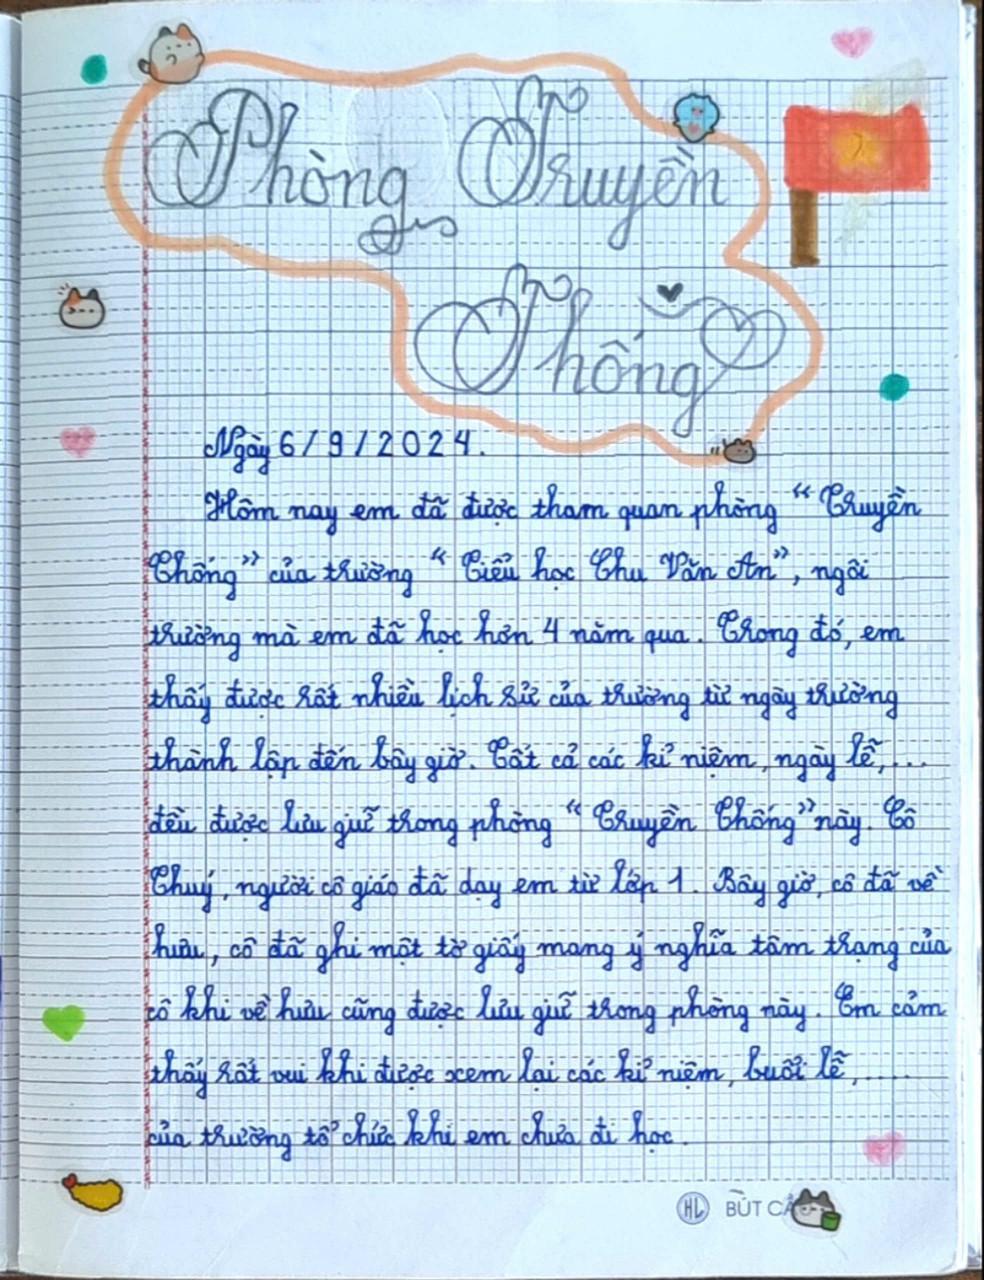 Phòng Truyền
Thống
Ngày 6/9/2024.
Hôm nay em đã được tham quan phòng “Truyền
Thống” của trường “Tiểu học Chu Văn An”, ngôi
trường mà em đã học hơn 4 năm qua. Trong đó, em
thấy được rất nhiều lịch sử của trường từ ngày trường
thành lập đến bây giờ. Tất cả các kỉ niệm, ngày lễ,...
đều được lưu giữ trong phòng “Truyền Thống” này. Cô
Thuý, người cô giáo đã dạy em từ lớp 1. Bây giờ, cô đã về
hưu, cô đã ghi một tờ giấy mang ý nghĩa tâm trạng của
cô khi về hưu cũng được lưu giữ trong phòng này. Em cảm
thấy rất vui khi được xem lại các kỉ niệm, buổi lễ,....
của trường tổ chức khi em chưa đi học.
HL BÚT